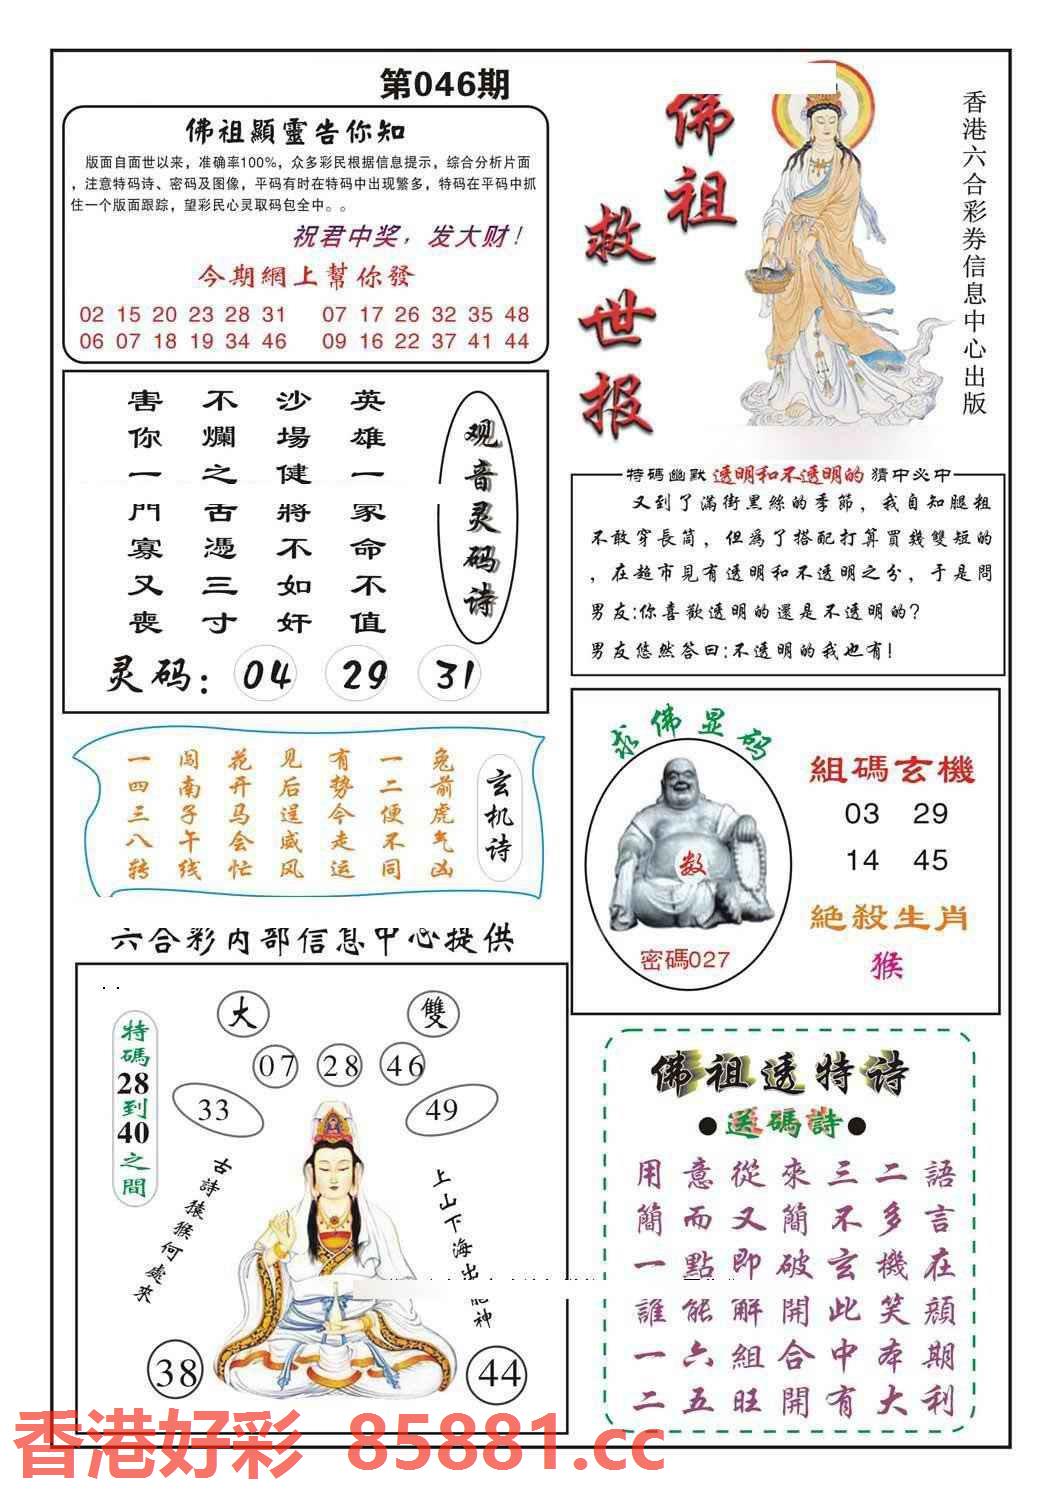 第046期
佛祖顯靈告你知
版面自面世以来，准确率100%，众多彩民根据信息提示，综合分析片面
，注意特码诗、密码及图像，平码有时在特码中出现繁多，特码在平码中抓
住一个版面跟踪，望彩民心灵取码包全中。。
祝君中奖，发大财！
今期網上幫你發
02 15 20 23 28 31 07 17 26 32 35 48
06 07 18 19 34 46 09 16 22 37 41 44
佛祖
救世报
香港六合彩券信息中心出版
观音灵码诗
英雄一冢命不值
沙場健將不如奸
不爛之舌憑三寸
害你一門寡又喪
灵码：04 29 31
特碼幽默 透明和不透明的 猜中必中
又到了滿街黑絲的季節，我自知腿粗
不敢穿長筒，但為了搭配打算買幾雙短的
，在超市見有透明和不透明之分，于是問
男友:你喜歡透明的還是不透明的？
男友悠然答曰:不透明的我也有！
玄机诗
兔前虎气凶
一二便不同
有势今走运
见后逞威风
花开马会忙
闯南子午线
一四三八转
求佛显码
数
密碼027
組碼玄機
03 29
14 45
絕殺生肖
猴
六合彩内部信息中心提供
特碼28到40之間
大 雙
07 28 46
33 49
古詩猿猴何處來
上山下海出
神
38 44
佛祖透特诗
●送碼詩●
用意從來三二語
簡而又簡不多言
一點即破玄機在
誰能解開此笑顔
一六組合中本期
二五旺開有大利
香港好彩 85881.cc